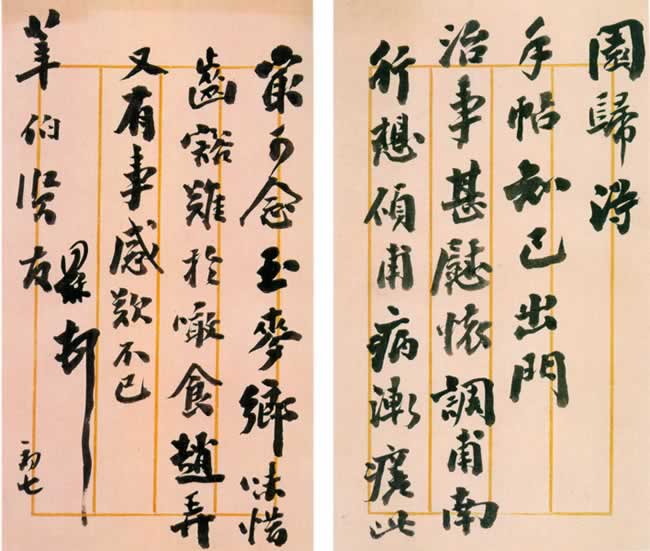 園歸得
手帖知已出門
治事甚慰懷調甫南
行想傾甫病漸瘥此
最可念玉麥鄉味惜
齒豁難於噉食趙弄
又有事感歎不已
莘伯賢友
初七